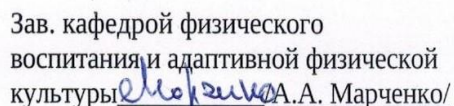 Зав. кафедрой физического
воспитания и адаптивной физической
культуры Марченко /А.А. Марченко/